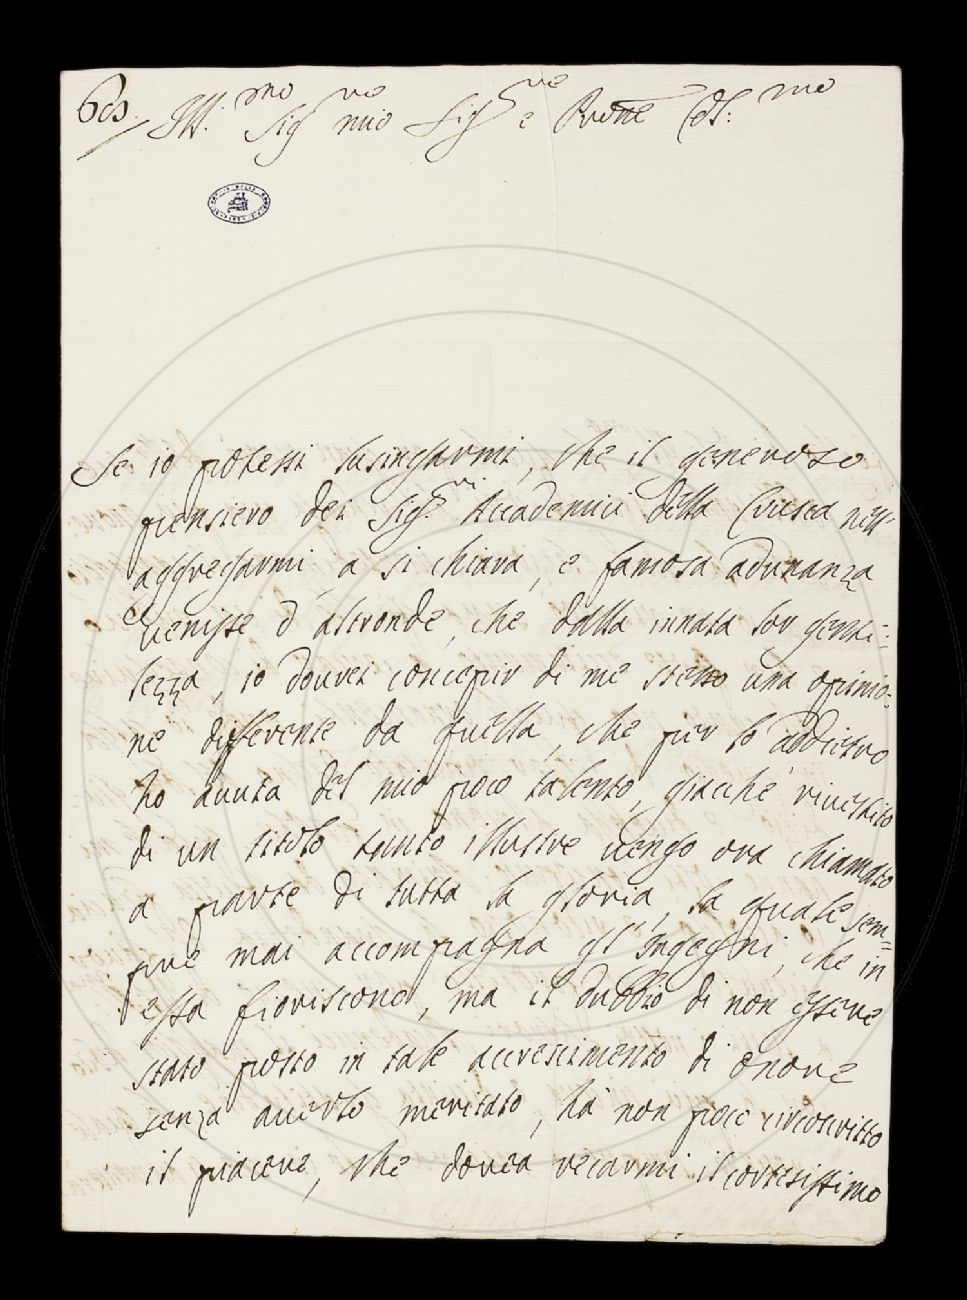 60s. Ill.mo Sig.re mio Sig.re e Pròne Col.mo
Se io potessi lusingarmi, che il generoso
pensiero dei Sig.ri Accademici della Crusca nell'
aggregarmi, a si chiara, e famosa adunanza
venisse d'altronde, che dalla innata lor genti=
lezza, io dourei concepir di me stesso una opinio=
ne differente da quella, che per lo addietro
ho auuta del mio poco talento, giacchè riuestito
di un titolo tanto illustre uengo ora chiamato
a parte di tutta la gloria, la quale sem=
pre mai accompagna gl'Ingegni, che in
essa fioriscono, ma il dubbio di non essere
stato posto in tale accrescimento di onore
senza auerlo meritato, hà non poco circoscritto
il piacere, che douea recarmi il cortesissimo